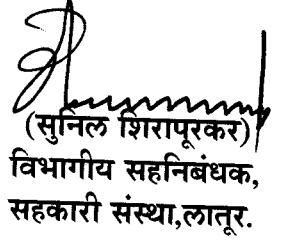 (सुनिल शिरापूरकर)
विभागीय सहनिबंधक,
सहकारी संस्था,लातूर.